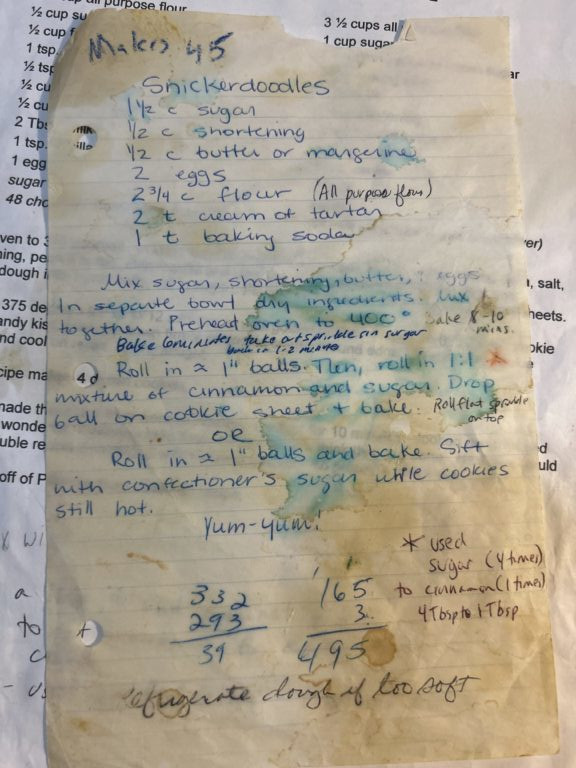 all purpose flour
½ cup su
½ cup
1 tsp.
½ tsp
½ cu
½ cu
2 Tb
1 tsp.
1 egg
sugar
48 cho
3 ½ cups all
1 cup sugar
Makes 45
Snickerdoodles
1 ½ c sugar
½ c shortening
½ c butter or margerine
2 eggs
2 ¾ c flour (All purpose flour)
2 t cream of tartar
1 t baking soda
Mix sugar, shortening, butter, & eggs
In separate bowl dry ingredients. Mix
together. Preheat oven to 400° Bake 8-10
mins.
Bake 6 minutes take out sprinkle cin sugar
back in 1-2 minutes
Roll in ≈ 1" balls. Then, roll in 1:1 *
mixture of cinnamon and sugar. Drop
ball on cookie sheet + bake. Roll flat sprinkle
on top
OR
Roll in ≈ 1" balls and bake. Sift
with confectioner's sugar while cookies
still hot.
Yum-yum!
* used
sugar (4 times)
to cinnamon (1 times)
4 Tbsp to 1 Tbsp
332
293
39
1
165
3
495
refrigerate dough if too soft
ven to
ing, pe
dough i
375 de
andy kis
nd cool
cipe ma
4 d
nade th
wonde
uble re
off of P
er)
, salt,
heets.
okie
d
uld